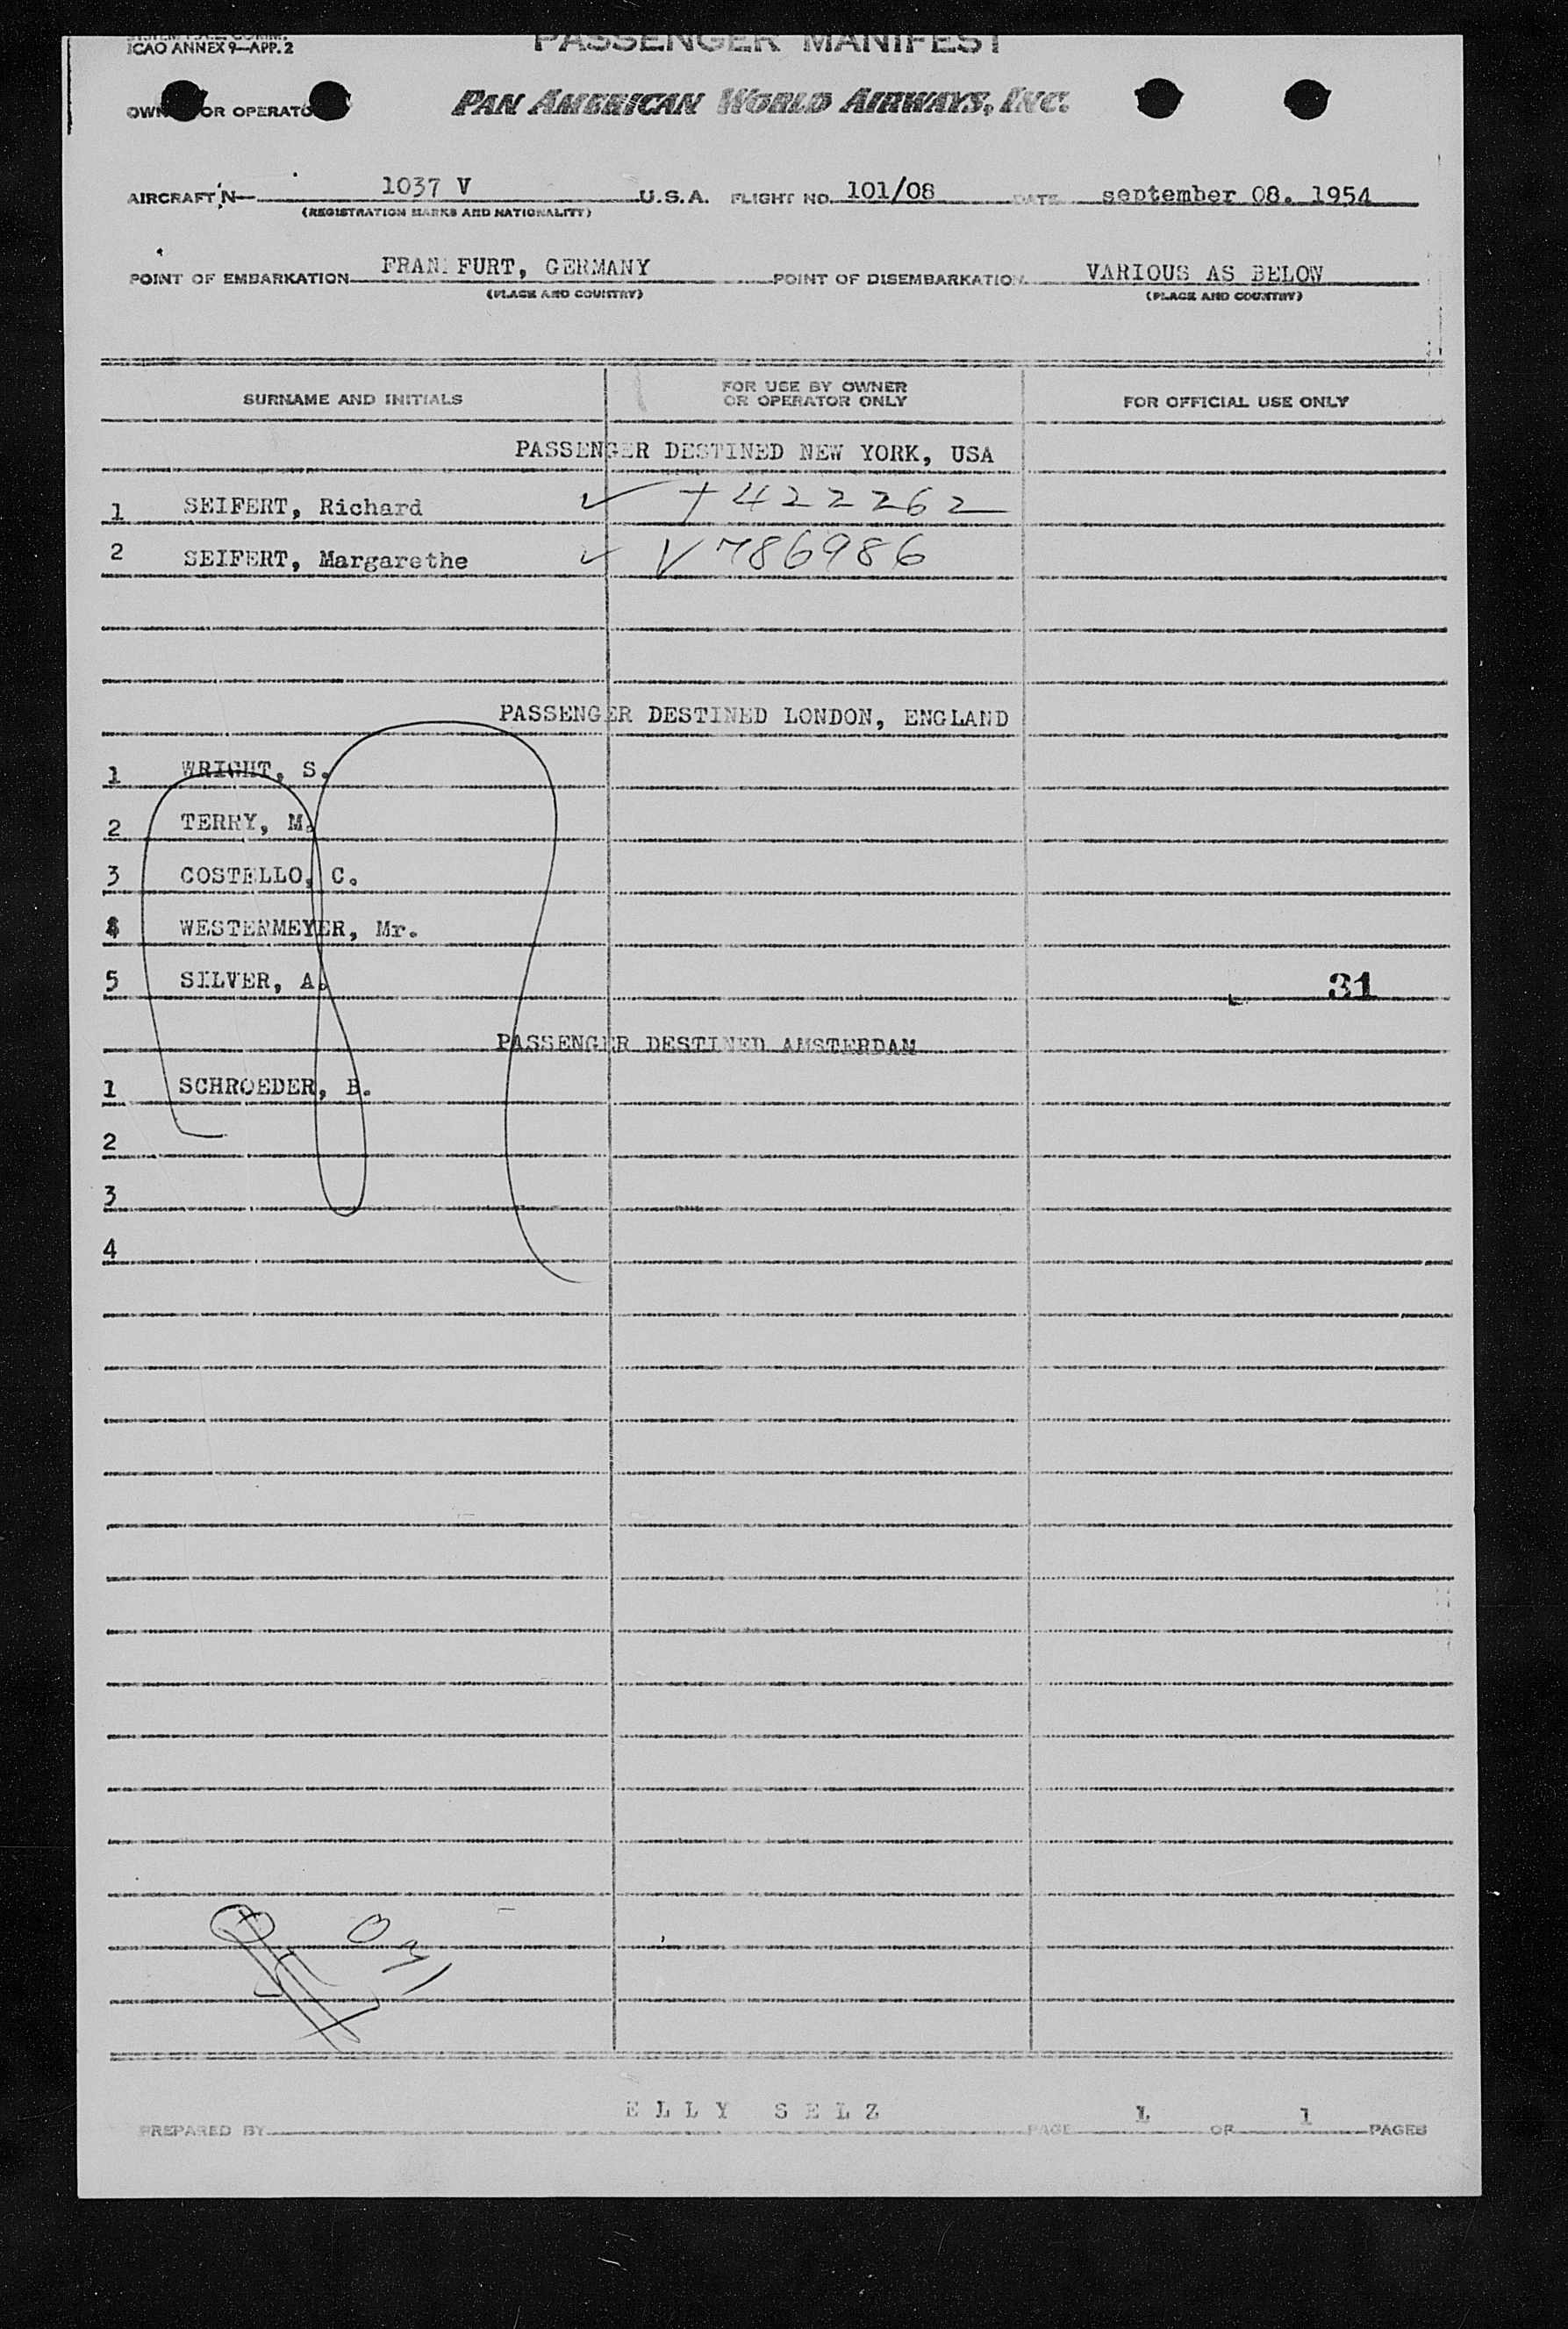 ICAO ANNEX 9—APP. 2
PASSENGER MANIFEST
OWNER OR OPERATOR PAN AMERICAN WORLD AIRWAYS, INC.
AIRCRAFT N— 1037 V U.S.A. FLIGHT NO. 101/08 DATE september 08. 1954
(REGISTRATION MARKS AND NATIONALITY)
POINT OF EMBARKATION FRANKFURT, GERMANY POINT OF DISEMBARKATION VARIOUS AS BELOW
(PLACE AND COUNTRY) (PLACE AND COUNTRY)
SURNAME AND INITIALS FOR USE BY OWNER OR OPERATOR ONLY FOR OFFICIAL USE ONLY
PASSENGER DESTINED NEW YORK, USA
1 SEIFERT, Richard ✓ +422262
2 SEIFERT, Margarethe ✓ V786986
PASSENGER DESTINED LONDON, ENGLAND
1 WRIGHT, S.
2 TERRY, M.
3 COSTELLO, C.
4 WESTERMEYER, Mr.
5 SILVER, A. 31
PASSENGER DESTINED AMSTERDAM
1 SCHROEDER, B.
2
3
4
PREPARED BY ELLY SELZ PAGE 1 OF 1 PAGES